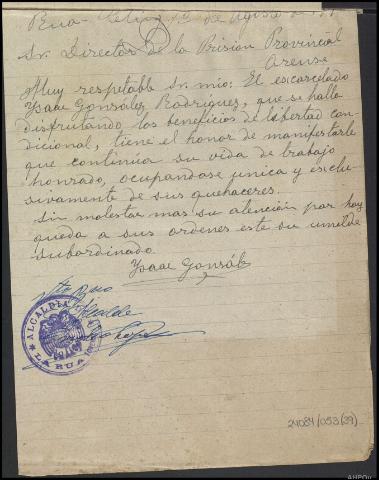 Rua-
Sr. Director de la Prision Provincial
Orense
Muy respetable Sr. mio: El excarcelado
Ysaac Gonsález Rodriguez, que se halla
disfrutando los beneficios de libertad con-
dicional, tiene el honor de manifestarle
que continua su vida de trabajo
honrado, ocupandose unica y esclu-
sivamente de sus quehaceres.
Sin molestar mas su atención por hoy
queda a sus ordenes este su umilde
subordinado
Ysaac Gonsález
Vto Bno
Alcalde
ALCALDIA
LA RUA
24084/053(39)
AHPOu